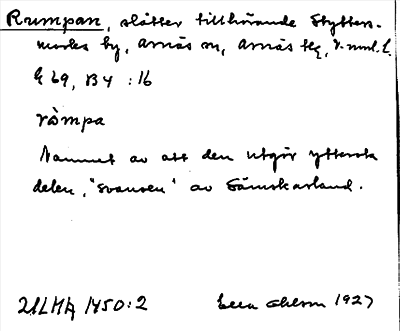 Rumpan, slåtter tillhörande Skytten-
marks by, Arnäs sn, Arnäs tlg, V.nml. L.
G 69, B4 : 16
ròmpa
Namnet av att den utgör yttersta
delen, "svansen" av Sämskarland.
ULMA 1450:2 Ella Ohlson 1927